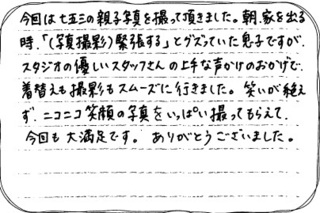 今回は七五三の親子写真を撮って頂きました。朝、家を出る
時、「(写真撮影)緊張する」とグズっていた息子ですが、
スタジオの優しいスタッフさんの上手な声かけのおかげで、
着替えも撮影もスムーズに行きました。笑いが絶え
ず、ニコニコ笑顔の写真をいっぱい撮ってもらえて、
今回も大満足です。ありがとうございました。